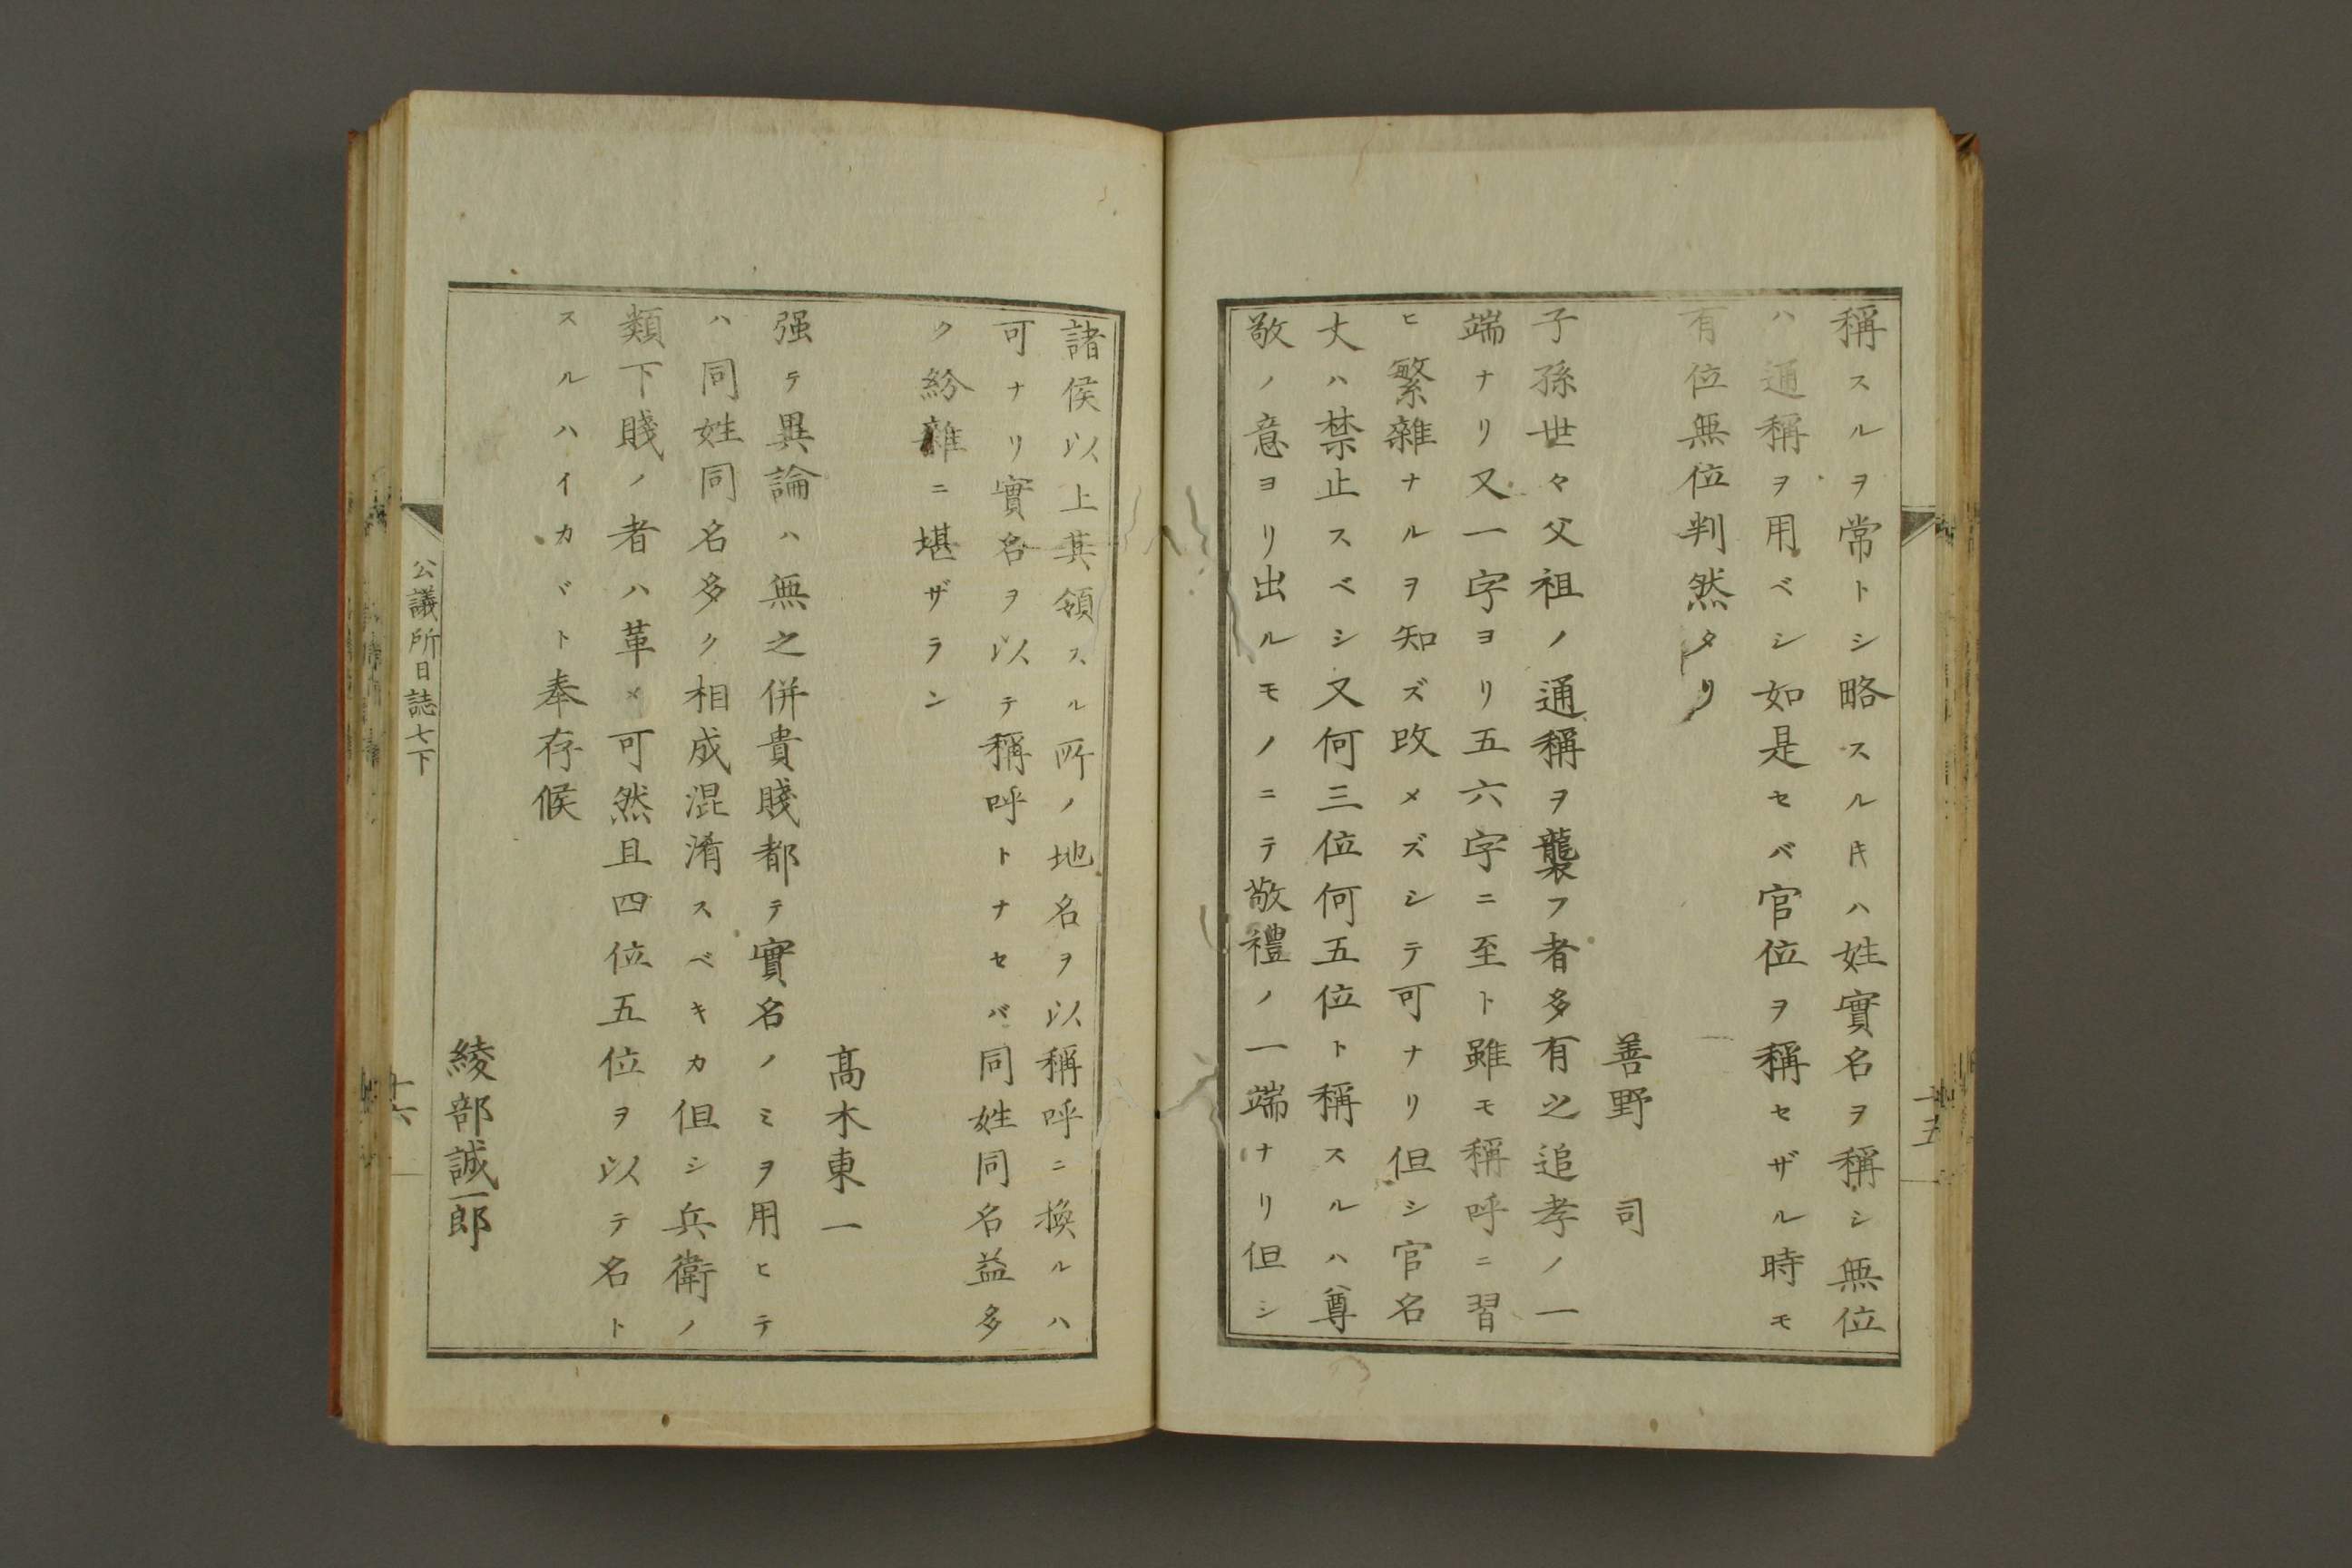 稱スルヲ常トシ略スルキハ姓實名ヲ稱シ無位
ハ通稱ヲ用ベシ如是セバ官位ヲ稱セザル時モ
有位無位判然タリ
善野 司
子孫世々父祖ノ通稱ヲ襲フ者多有之追孝ノ一
端ナリ又一字ヨリ五六字ニ至ト雖モ稱呼ニ習
ヒ繁雜ナルヲ知ズ改メズシテ可ナリ但シ官名
大ハ禁止スベシ又何三位何五位ト稱スルハ尊
敬ノ意ヨリ出ルモノニテ敬禮ノ一端ナリ但シ
諸侯以上其領スル所ノ地名ヲ以稱呼ニ換ルハ
可ナリ實名ヲ以テ稱呼トナセバ同姓同名益多
ク紛雜ニ堪ザラン
髙木東一
强テ異論ハ無之併貴賤都テ實名ノミヲ用ヒテ
ハ同姓同名多ク相成混淆スベキカ但シ兵衛ノ
類下賤ノ者ハ革メ可然且四位五位ヲ以テ名ト
スルハイカヾト奉存候
綾部誠一郎
公議所日誌七下
十六